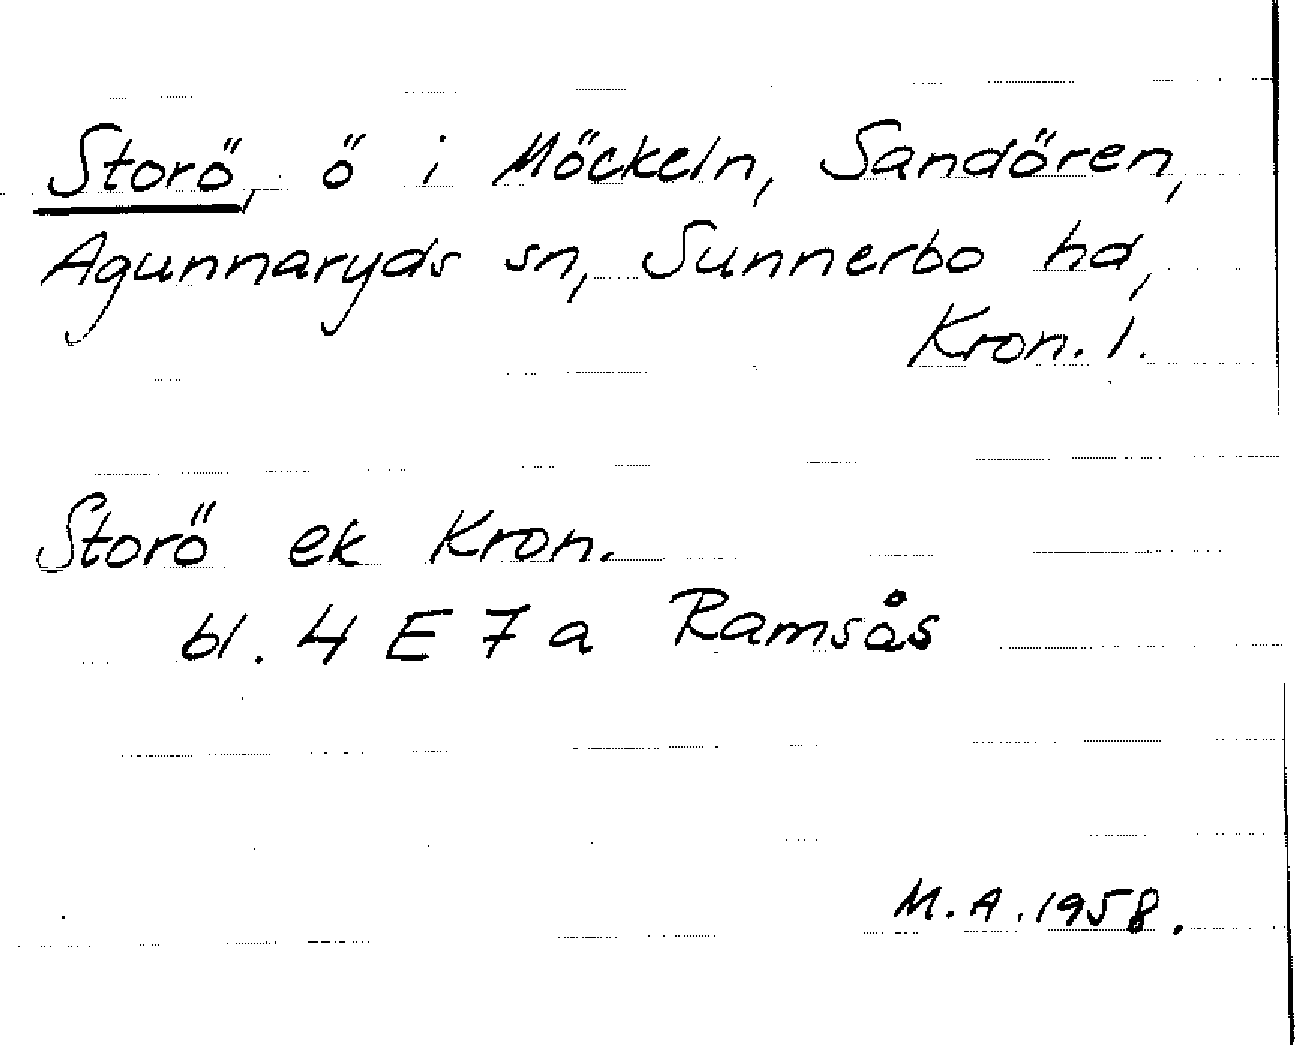 Storö, ö i Möckeln, Sandören,
Agunnaryds sn, Sunnerbo hd,
Kron. l.
Storö ek Kron.
bl. 4 E 7 a Ramsås
M.A. 1958.